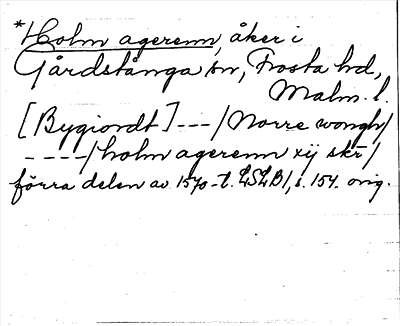 *Holm agerenn, åker i
Gårdstånga sn, Frosta hd,
Malm. l.
[Bygiordt] ---/Norre wongh/
----/holm agerenn xij skr/
förra delen av 1570-t. LSLB1, s. 154. orig.